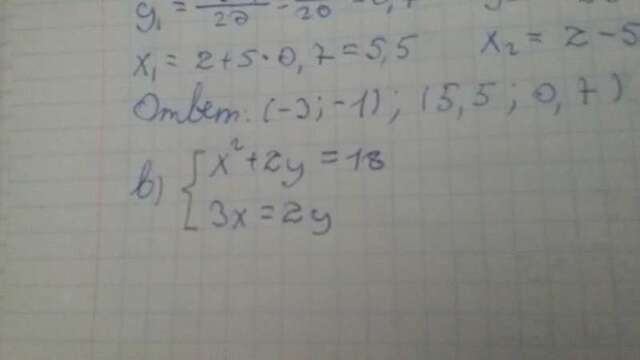 x₁ = 2+5·0,7=5,5 x₂ = 2-5
Ответ: (-3;-1); (5,5; 0,7)
в) { x²+2y=18
3x=2y